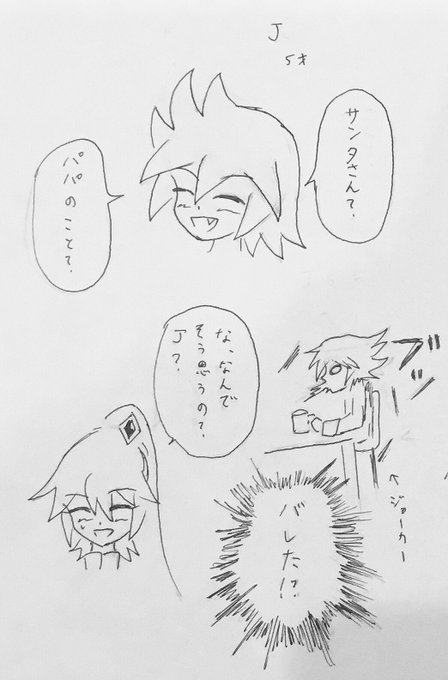 J
5才
サンタさん?
パパのこと?
な、なんで
そう思うの?
J?
ブブ
バレた!?
←ジョーカー